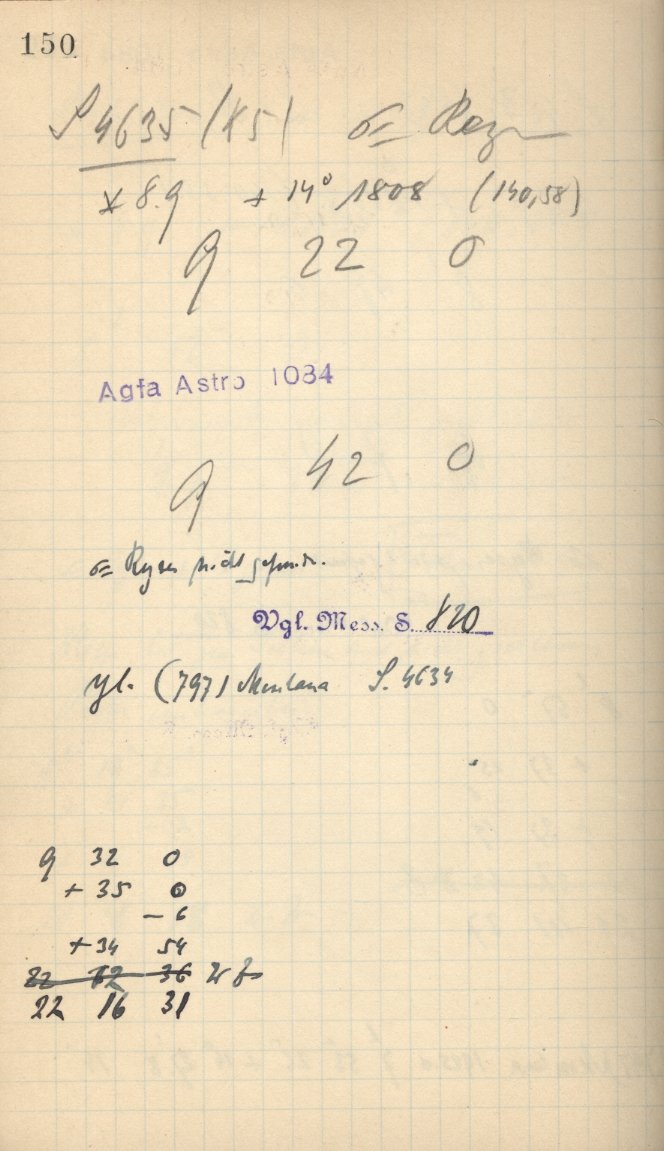 150
S 4635 (K5) σ= Reg
× 8.9 + 14° 1808 (140,58)
9 22 0
Agfa Astro 1084
9 42 0
σ= nicht
Vgl. Mess. S. 820
vgl. (797) Montana S. 4634
9 32 0
+ 35 0
— 6
+34 54
22 12 36
22 16 31